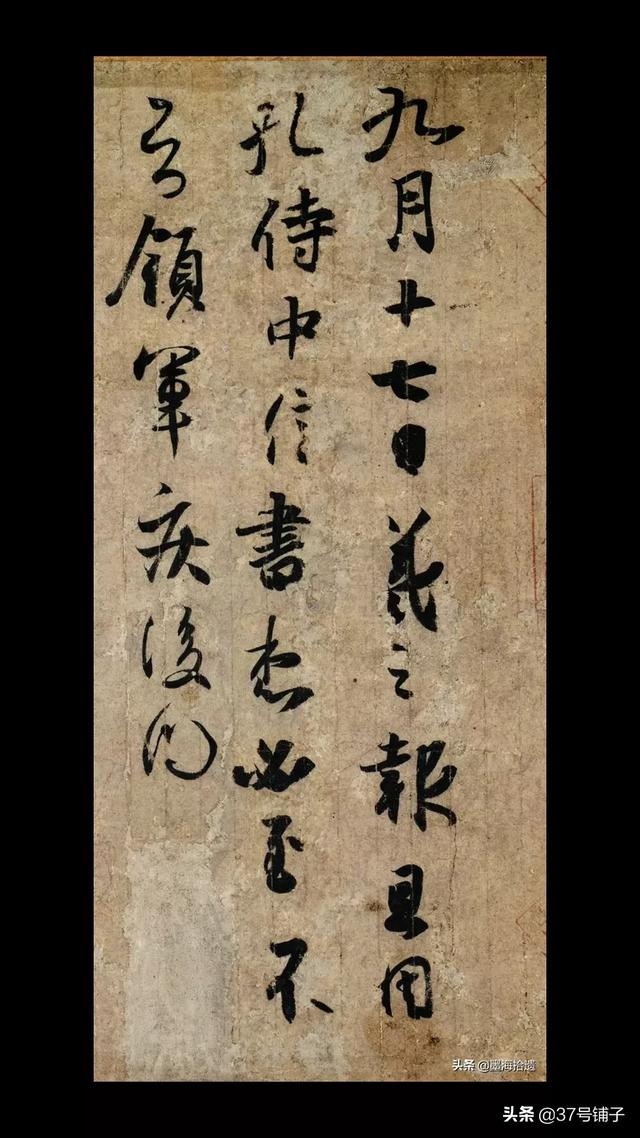 九月十七日羲之報且因
孔侍中信書想必至不
知領軍疾後問
头条 @墨海拾遗
头条 @37号铺子